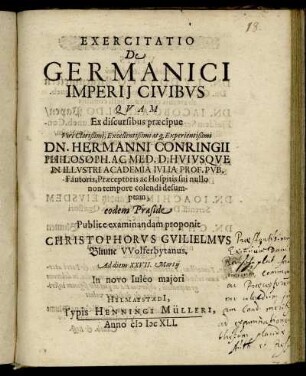 18.
EXERCITATIO
De
GERMANICI
IMPERIJ CIVIBVS
QVAM
Ex discursibus præcipue
Viri Clarissimi, Excellentissimi atq, Experientissimi
DN. HERMANNI CONRINGII
PHILOSOPH. AC MED. D. HVIVSQVE
IN ILLVSTRI ACADEMIA IVLIA PROF. PVB.
Fautoris, Præceptoris ac Hospitis sui nullo
non tempore colendi desum-
ptam,
eodem Præside
Publice examinandam proponit
CHRISTOPHORVS GVILIELMVS
Blume VVolferbytanus.
Ad diem XXVII. Martij
In novo Iuleo majori
HELMAESTADI,
Typis HENNINGI MÜLLERI,
Anno cIɔ Iɔc XLI.